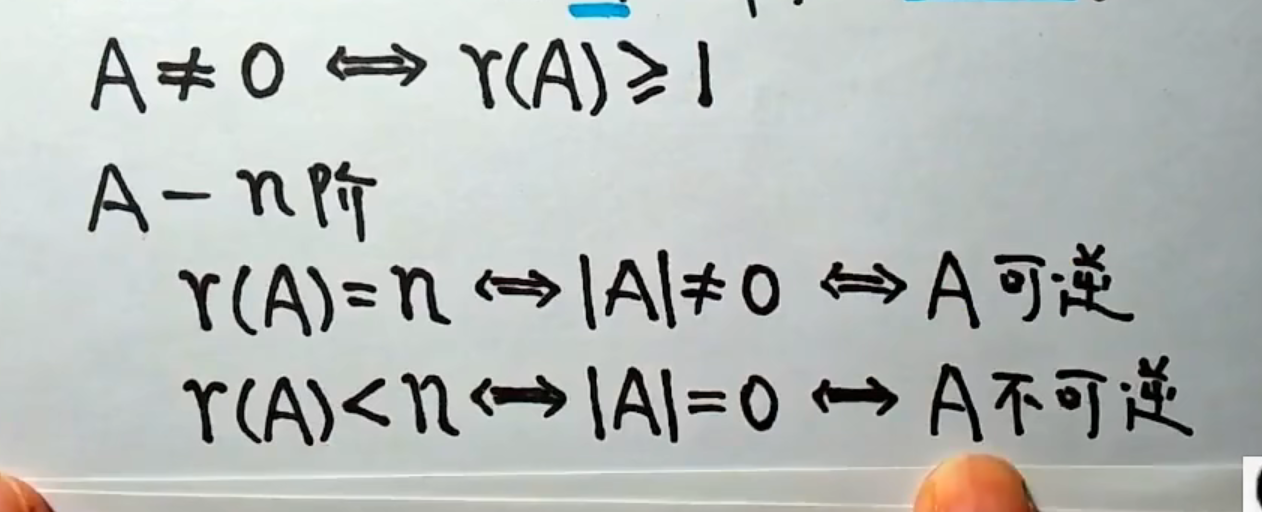 A ≠ 0 ⟺ r(A) ≥ 1
A – n 阶
r(A) = n ⟺ |A| ≠ 0 ⟺ A 可逆
r(A) < n ⟺ |A| = 0 ⟺ A 不可逆